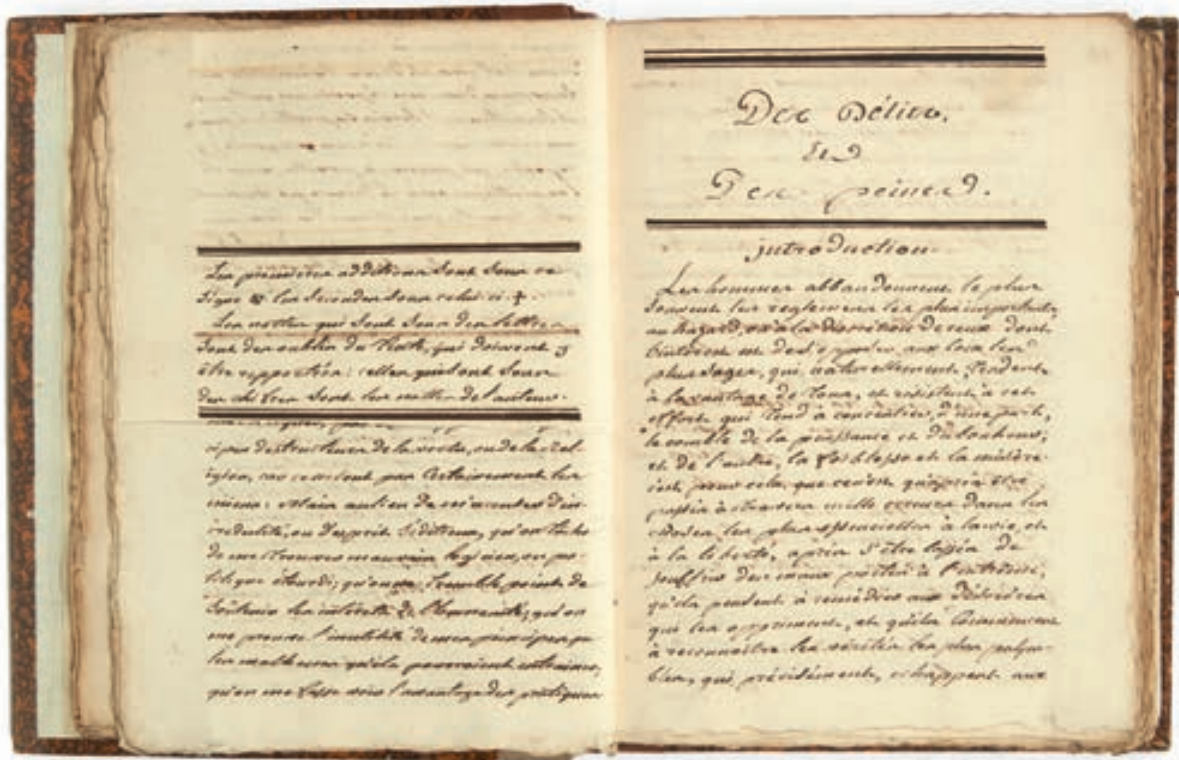 Les premieres additions sont sous ce
signe & les secondes sous celui ci +
Les nottes qui sont sous des lettres
sont des oublis du Texte, qui doivent y
être rapportées: celles qui sont sous
des chifres sont les nottes de l'auteur.
cipes destructeurs de la vertu, ou de la réli-
gion, car ce ne sont pas certainement les
miens: mais au lieu de m'accuser d'in-
credulité, ou d'esprit séditieux, qu'on tache
de me trouver mauvais logicien, ou po-
litique étourdi; qu'on ne tremble point de
soutenir les interets de l'humanité, qu'on
me prouve l'inutilité de mes principes ou
les malheurs qu'ils pourraient entrainer,
qu'on me fasse voir l'avantage des pratiques
Des Délits.
Et
Des peines.
introduction
Les hommes abbandonnent le plus
souvent les reglemens les plus importants
au hazard, ou à la discrétion de ceux dont
l'interest est de s'opposer aux loix les
plus sages, qui, naturellement, tendent
à l'avantage de tous, et resistent à cet
effort qui tend à concentrer, d'une part,
le comble de la puissance et du bonheur,
et de l'autre, la foiblesse et la misère
c'est pour cela que ce n'est qu'après être
passés à travers mille erreurs dans les
choses les plus essencielles à la vie et
à la liberté, après s'être lassés de
souffrir des maux portés à l'extrême,
qu'ils pensent à remédier aux désordres
qui les oppriment, et qu'ils commencent
à reconnoitre les vérités les plus palpa-
bles, qui précisément, echappent aux